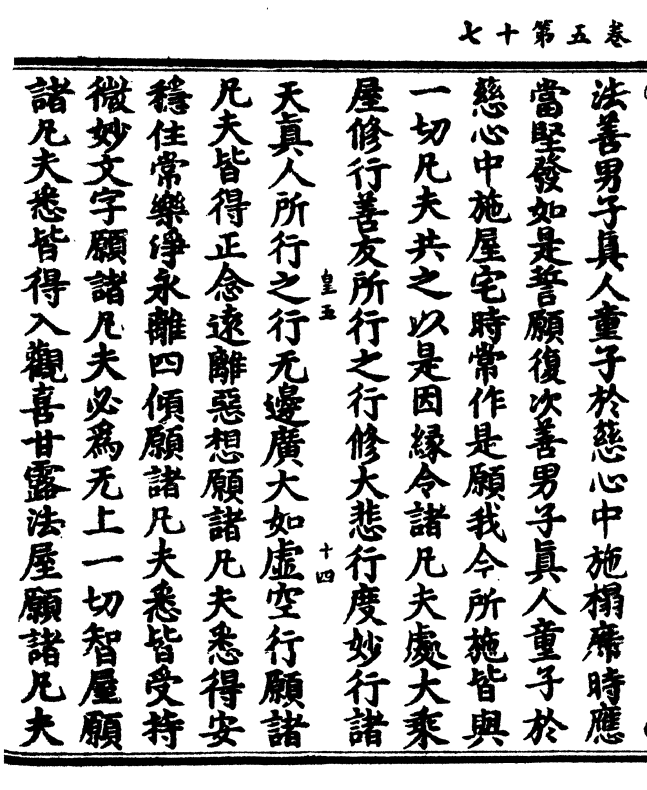 七十第五卷
法善男子真人童子於慈心中施榻席時應
當堅發如是誓願復次善男子真人童子於
慈心中施屋宅時常作是願我今所施皆與
一切凡夫共之以是因緣令諸凡夫處大乘
屋修行善友所行之行修大悲行度妙行諸
皇五
十四
天真人所行之行无邊廣大如虛空行願諸
凡夫皆得正念遠離惡想願諸凡夫悉得安
穩住常樂淨永離四傾願諸凡夫悉皆受持
微妙文字願諸凡夫必為无上一切智屋願
諸凡夫悉皆得入觀喜甘露法屋願諸凡夫